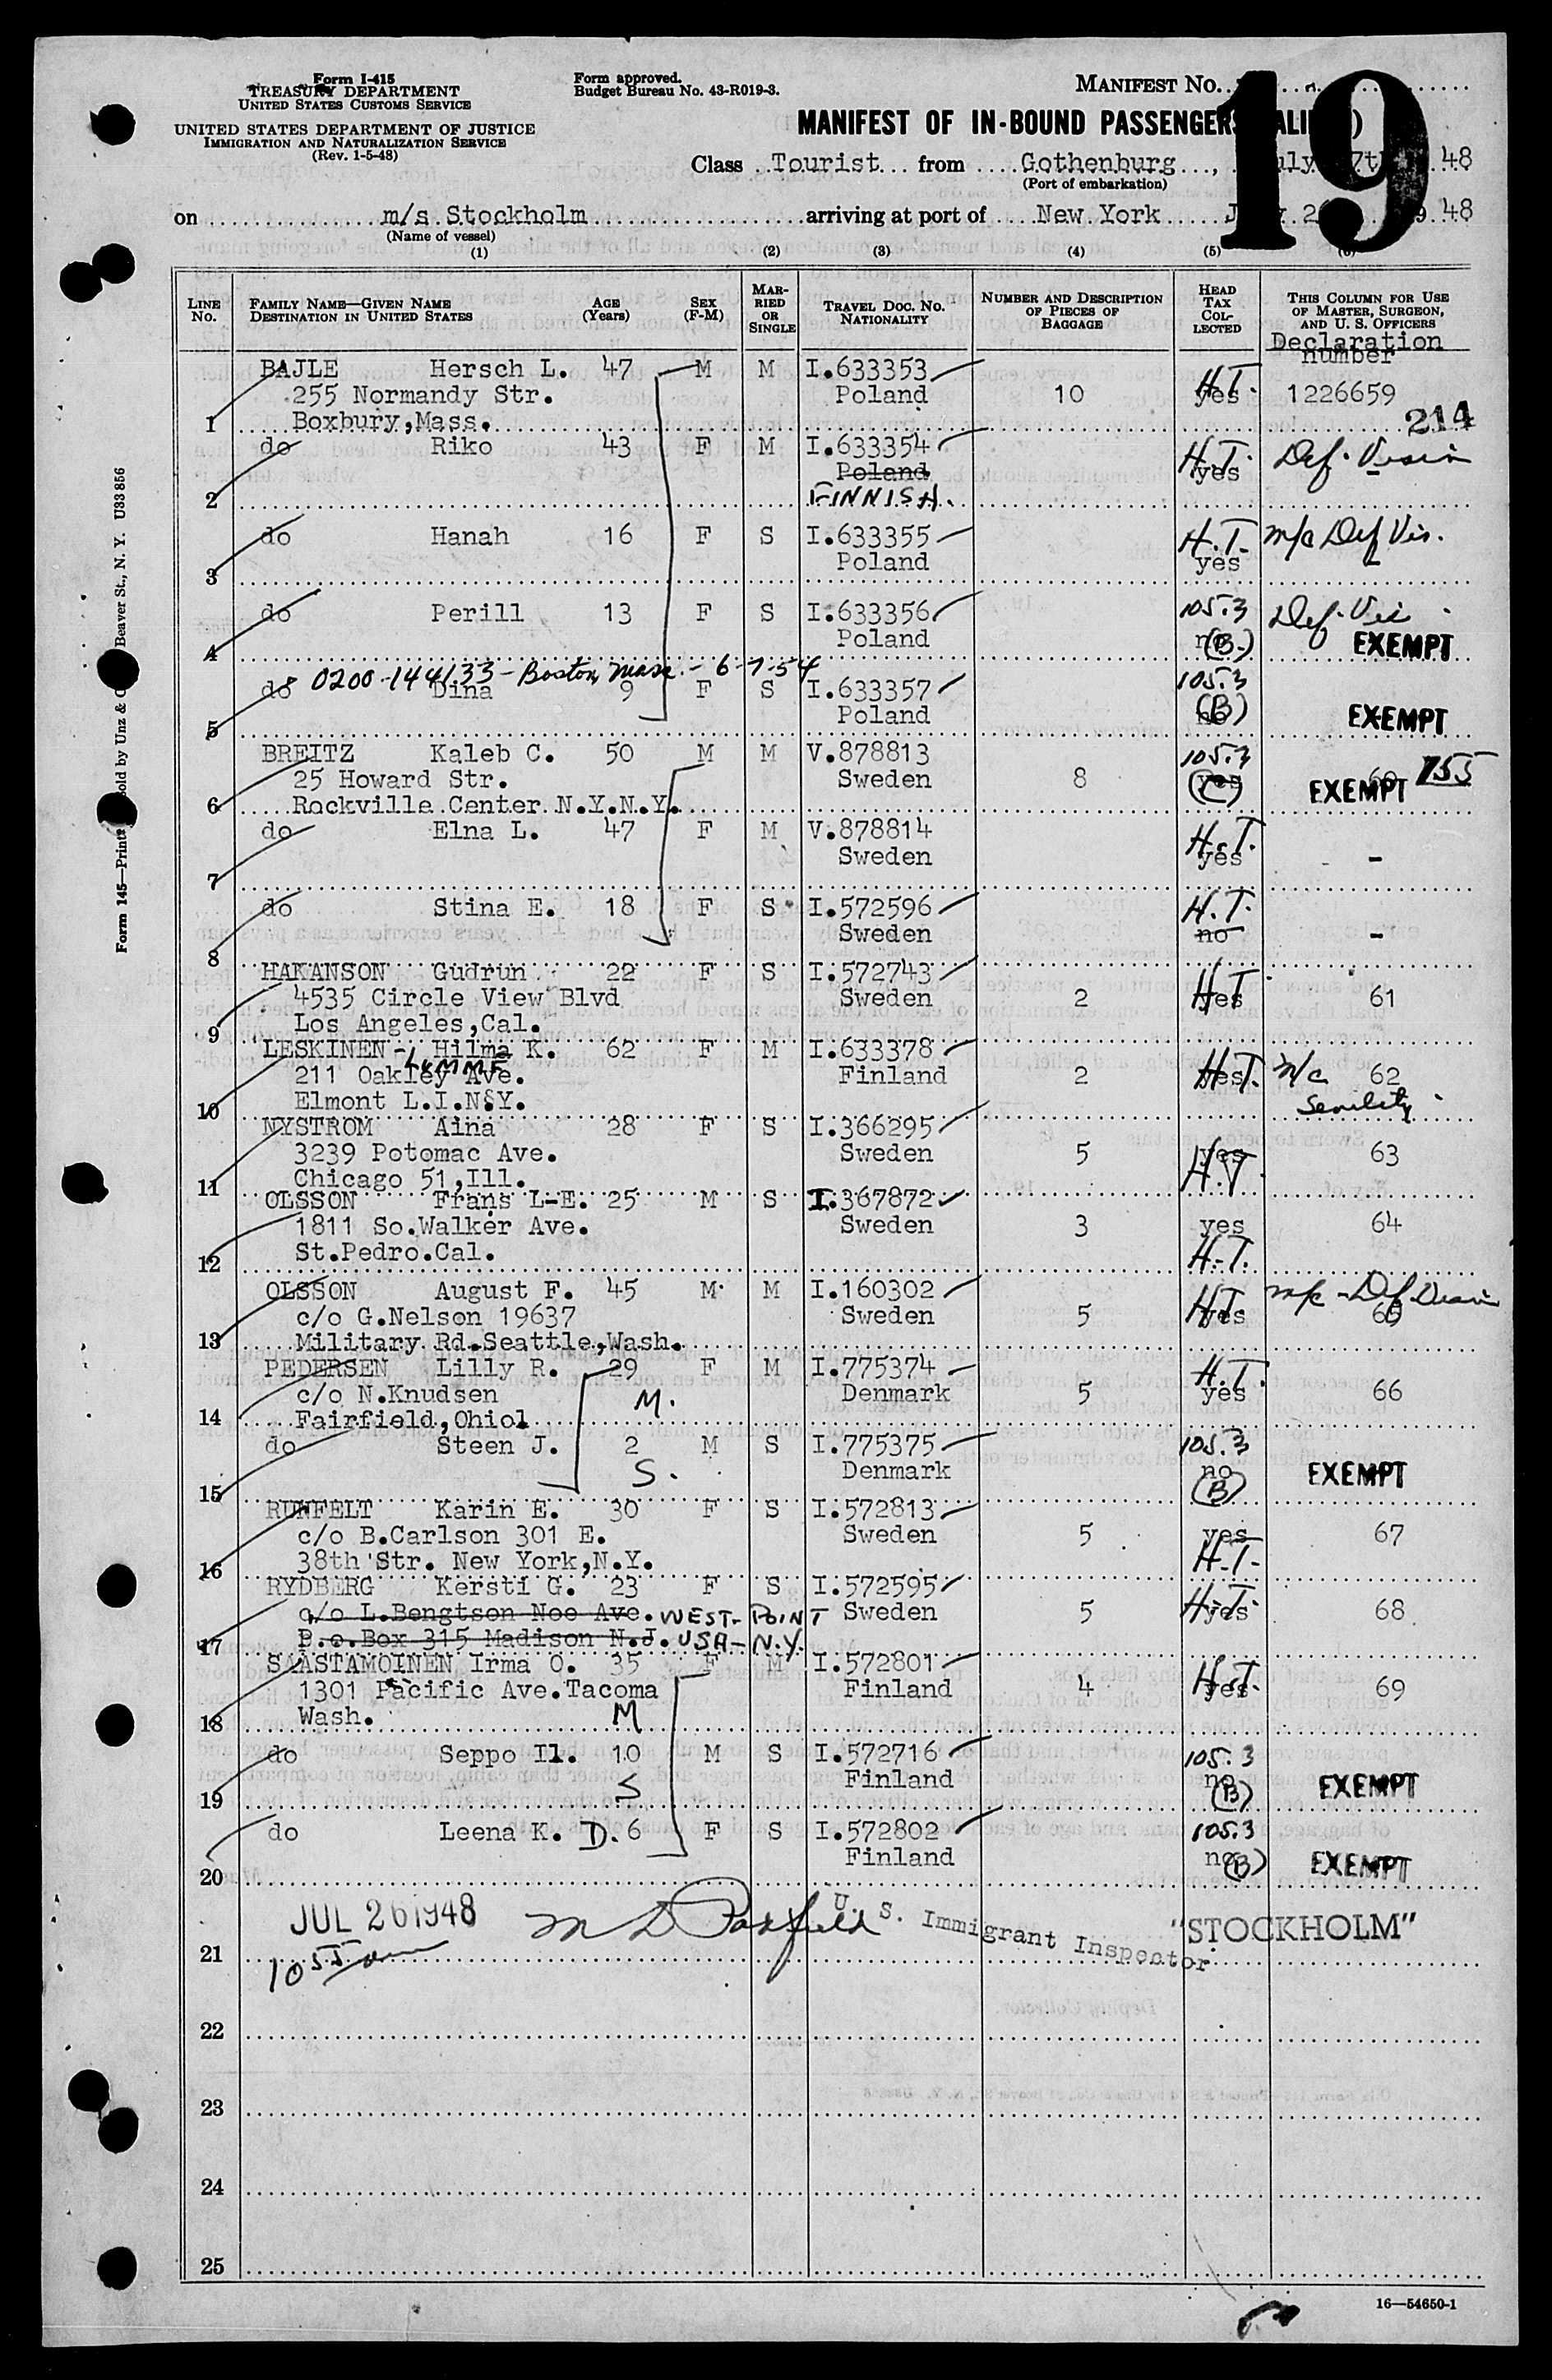 Form I-415
TREASURY DEPARTMENT
UNITED STATES CUSTOMS SERVICE
UNITED STATES DEPARTMENT OF JUSTICE
IMMIGRATION AND NATURALIZATION SERVICE
(Rev. 1-5-48)
Form approved.
Budget Bureau No. 43-R019-3.
MANIFEST NO.
19
MANIFEST OF IN-BOUND PASSENGERS
Class Tourist from Gothenburg, 48
(Port of embarkation)
on m/s Stockholm arriving at port of New York 48
(Name of vessel)
(1) (2) (3) (4) (5)
LINE No. FAMILY NAME—GIVEN NAME DESTINATION IN UNITED STATES AGE (Years) SEX (F-M) MARRIED OR SINGLE TRAVEL DOC. NO. NATIONALITY NUMBER AND DESCRIPTION OF PIECES OF BAGGAGE HEAD TAX COLLECTED THIS COLUMN FOR USE OF MASTER, SURGEON, AND U. S. OFFICERS
Declaration number
BAJLE Hersch L. 47 M M I.633353 H.T.
255 Normandy Str. Poland 10 yes 1226659
1 Boxbury,Mass. 214
do Riko 43 F M I.633354 H.T. Def. Vision
Poland yes
2 FINNISH.
do Hanah 16 F S I.633355 H.T. m/c Def Vis.
3 Poland yes
do Perill 13 F S I.633356 105.3 Def. Vis
4 Poland no (B.) EXEMPT
0200-144133 - Boston, Mass. - 6-7-54
do Dina 9 F S I.633357 105.3
5 Poland no (B) EXEMPT
BREITZ Kaleb C. 50 M M V.878813 105.3
25 Howard Str. Sweden 8 yes (C) 60 EXEMPT 155
6 Rockville Center N.Y.N.Y.
do Elna L. 47 F M V.878814 H.T.
7 Sweden yes -
do Stina E. 18 F S I.572596 H.T.
8 Sweden no -
HAKANSON Gudrun 22 F S I.572743 H.T.
4535 Circle View Blvd Sweden 2 yes 61
9 Los Angeles,Cal.
LESKINEN - Hilma K. 62 F M I.633378
LUMME
211 Oakley Ave. Finland 2 yes H.T. m/c 62
10 Elmont L.I.N.Y. Senility
NYSTROM Aina 28 F S I.366295
3239 Potomac Ave. Sweden 5 yes 63
11 Chicago 51,Ill. H.T.
OLSSON Frans L-E. 25 M S I.367872
1811 So.Walker Ave. Sweden 3 yes 64
12 St.Pedro.Cal. H.T.
OLSSON August F. 45 M M I.160302 m/c - Def Vision
c/o G.Nelson 19637 Sweden 5 yes H.T. 65
13 Military Rd.Seattle,Wash.
PEDERSEN Lilly R. 29 F M I.775374 H.T.
c/o N.Knudsen M. Denmark 5 yes 66
14 Fairfield,Ohiol
do Steen J. 2 M S I.775375 105.3
15 S. Denmark no (B) EXEMPT
RUNFELT Karin E. 30 F S I.572813
c/o B.Carlson 301 E. Sweden 5 yes 67
16 38th Str. New York,N.Y. H.T.
RYDBERG Kersti G. 23 F S I.572595
c/o L.Bengtson Noe Ave. WEST-POINT Sweden 5 yes H.T. 68
17 P.o.Box 315 Madison N.J. USA - N.Y.
SAASTAMOINEN Irma O. 35 F M I.572801
1301 Pacific Ave.Tacoma Finland 4 yes H.T. 69
18 Wash. M
do Seppo Il. 10 M S I.572716 105.3
19 S Finland no (B) EXEMPT
do Leena K. D. 6 F S I.572802 105.3
20 Finland no (B) EXEMPT
JUL 26 1948 U. S. Immigrant Inspector "STOCKHOLM"
21 10 55 am
22
23
24
25
16—54650-1
Beaver St., N. Y. U33856
Form 145—